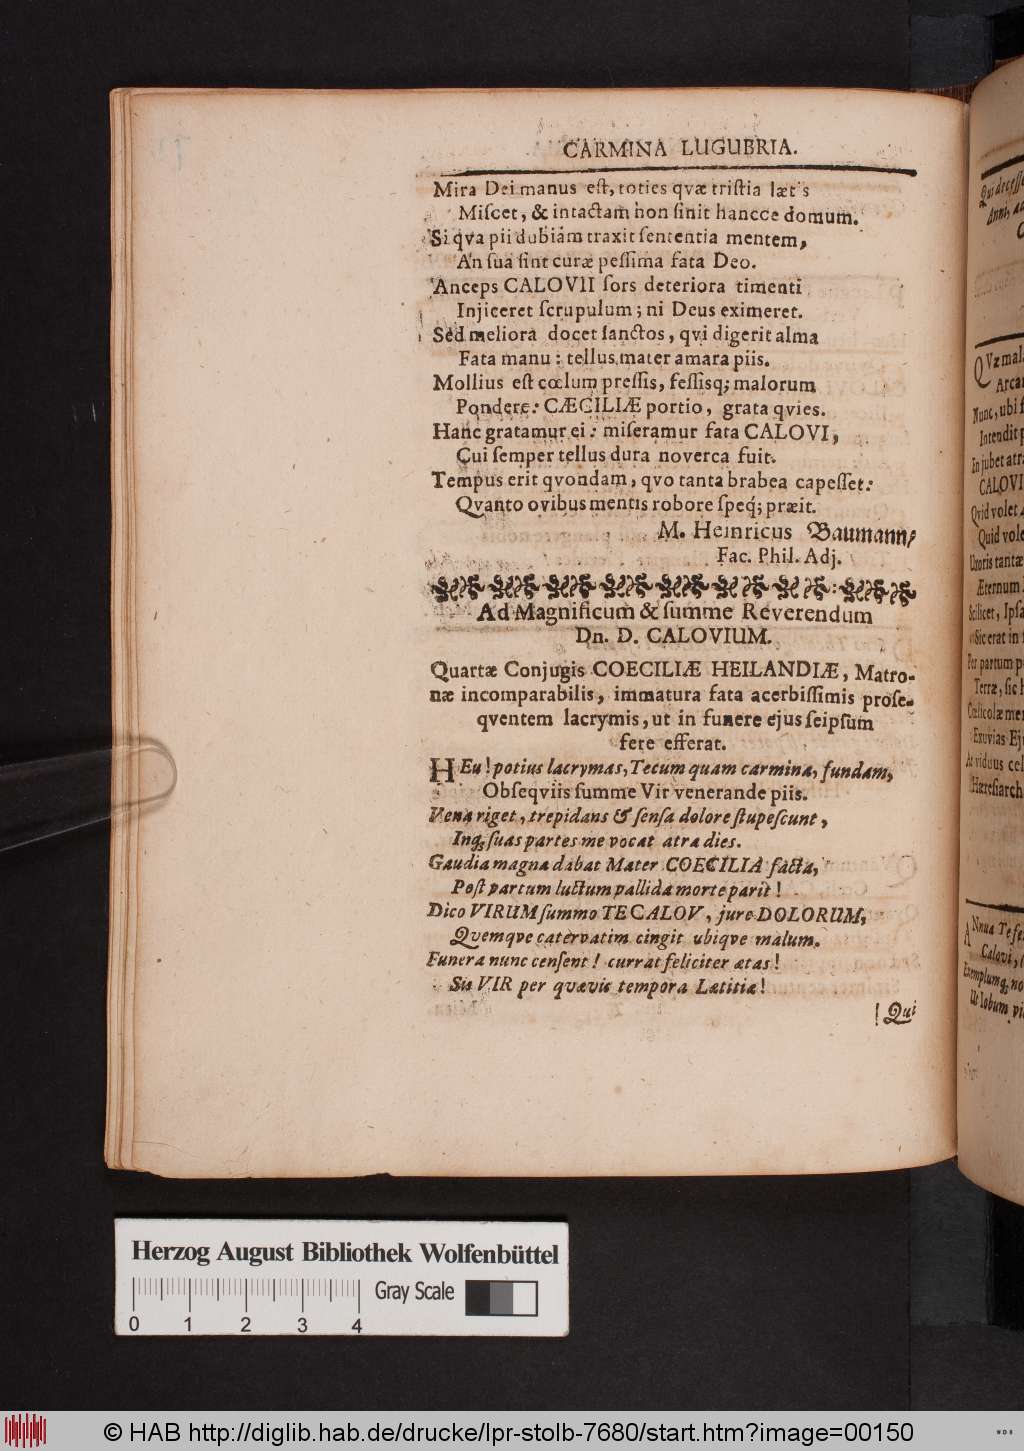 CARMINA LUGUBRIA.
Mira Dei manus eſt, toties qvæ triſtia læt s
Miſcet, & intactam non ſinit hancce domum.
Si qva pii dubiam traxit ſententia mentem,
An ſua ſint curæ peſſima fata Deo.
Anceps CALOVII ſors deteriora timenti
Injiceret ſcrupulum; ni Deus eximeret.
Sed meliora docet ſanctos, qvi digerit alma
Fata manu: tellus mater amara piis.
Mollius eſt cœlum preſſis, feſſisq; malorum
Pondere: CÆCILIÆ portio, grata qvies.
Hanc gratamur ei: miſeramur fata CALOVI,
Cui ſemper tellus dura noverca fuit.
Tempus erit qvondam, qvo tanta brabea capeſſet:
Qvanto ovibus mentis robore ſpeq́; præit.
M. Heinricus Baumann/
Fac. Phil. Adj.
Ad Magnificum & ſumme Reverendum
Dn. D. CALOVIUM.
Quartæ Conjugis COECILIÆ HEILANDIÆ, Matro-
næ incomparabilis, immatura fata acerbiſſimis proſe-
qventem lacrymis, ut in funere ejus ſeipſum
fere efferat.
HEu! potius lacrymas, Tecum quam carmina, fundam,
Obſeqviis ſumme Vir venerande piis.
Vena riget, trepidans & ſenſa dolore ſtupeſcunt,
Inq; ſuas partes me vocat atra dies.
Gaudia magna dabat Mater COECILIA facta,
Poſt partum luctum pallida morte parit!
Dico VIRUM ſummo TE CALOV, jure DOLORUM,
Quemqve catervatim cingit ubiqve malum.
Funera nunc cenſent! currat feliciter ætas!
Sis VIR per quævis tempora Lætitiæ!
Qui
Qui deceſſe
Anni, ac
QVæ mal
Arcan
Nunc, ubi f
Intendit p
In jubet atra
CALOVI
Qvid volet
Quid vole
Uxoris tantæ
Æternum
Scilicet, Ipſa
Sic erat in
Per partum p
Terræ, ſic h
Cœlicolæ me
Exuvias Ej
At viduus cel
Hæreſiarch
ANnua Te ſe
Calovi, 
Exemplumq; no
Ut Iobum vi
Herzog August Bibliothek Wolfenbüttel
Gray Scale
0 1 2 3 4
© HAB http://diglib.hab.de/drucke/lpr-stolb-7680/start.htm?image=00150